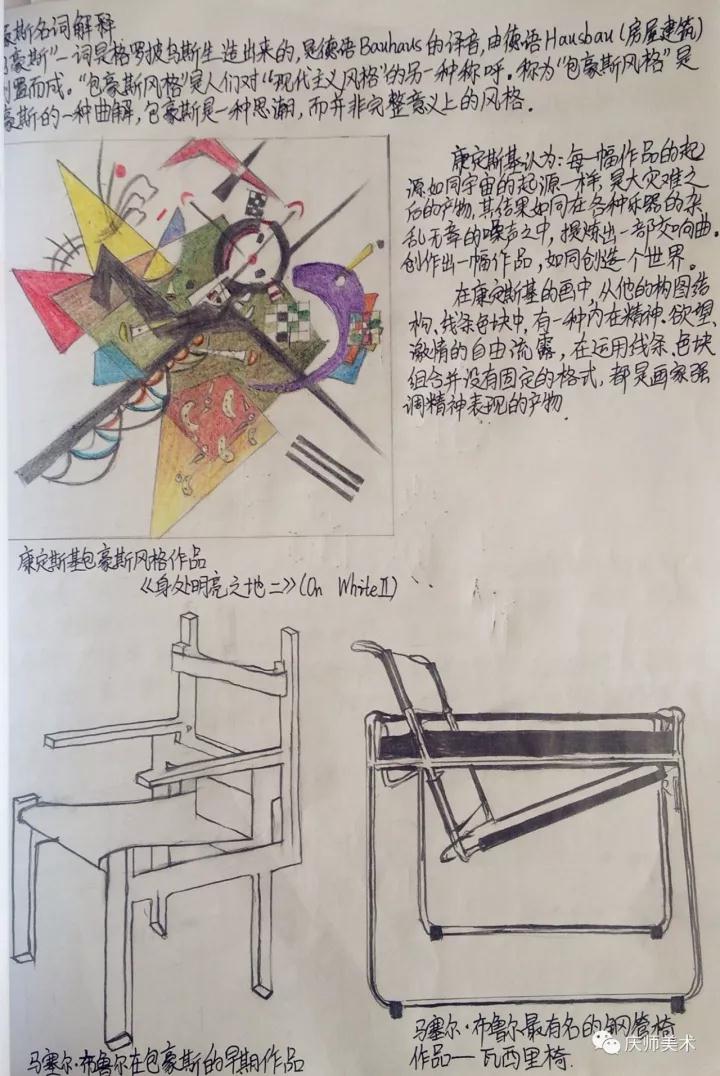 豪斯名词解释
豪斯”一词是格罗披乌斯生造出来的,是德语Bauhaus的译音,由德语Hausbau(房屋建筑)
倒置而成。“包豪斯风格”是人们对“现代主义风格”的另一种称呼。称为“包豪斯风格”是
豪斯的一种曲解,包豪斯是一种思潮,而并非完整意义上的风格.
康定斯基认为:每一幅作品的起
源如同宇宙的起源一样,是大灾难之
后的产物,其结果如同在各种乐器的杂
乱无章的噪声之中,提炼出一部交响曲。
创作出一幅作品,如同创造一个世界。
在康定斯基的画中,从他的构图结
构、线条色块中,有一种内在精神、欲望、
激情的自由流露,在运用线条、色块
组合并没有固定的格式,都是画家强
调精神表现的产物.
康定斯基包豪斯风格作品
《身处明亮之地二》(On White II)
马塞尔·布鲁尔在包豪斯的早期作品
马塞尔·布鲁尔最有名的钢管椅
作品——瓦西里椅.
庆师美术